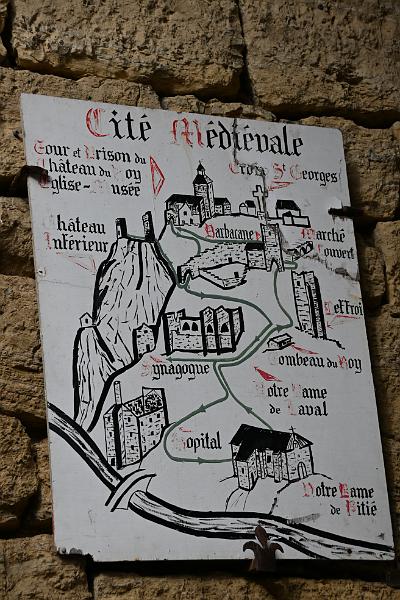 Cité Médiévale
Tour et Prison du
Château du Roy
Eglise-Musée
Croix St Georges
Château
Inférieur
Barbacane
Marché
Couvert
Beffroi
Synagogue
Tombeau du Roy
Notre Dame
de Laval
Hopital
Notre Dame
de Pitié